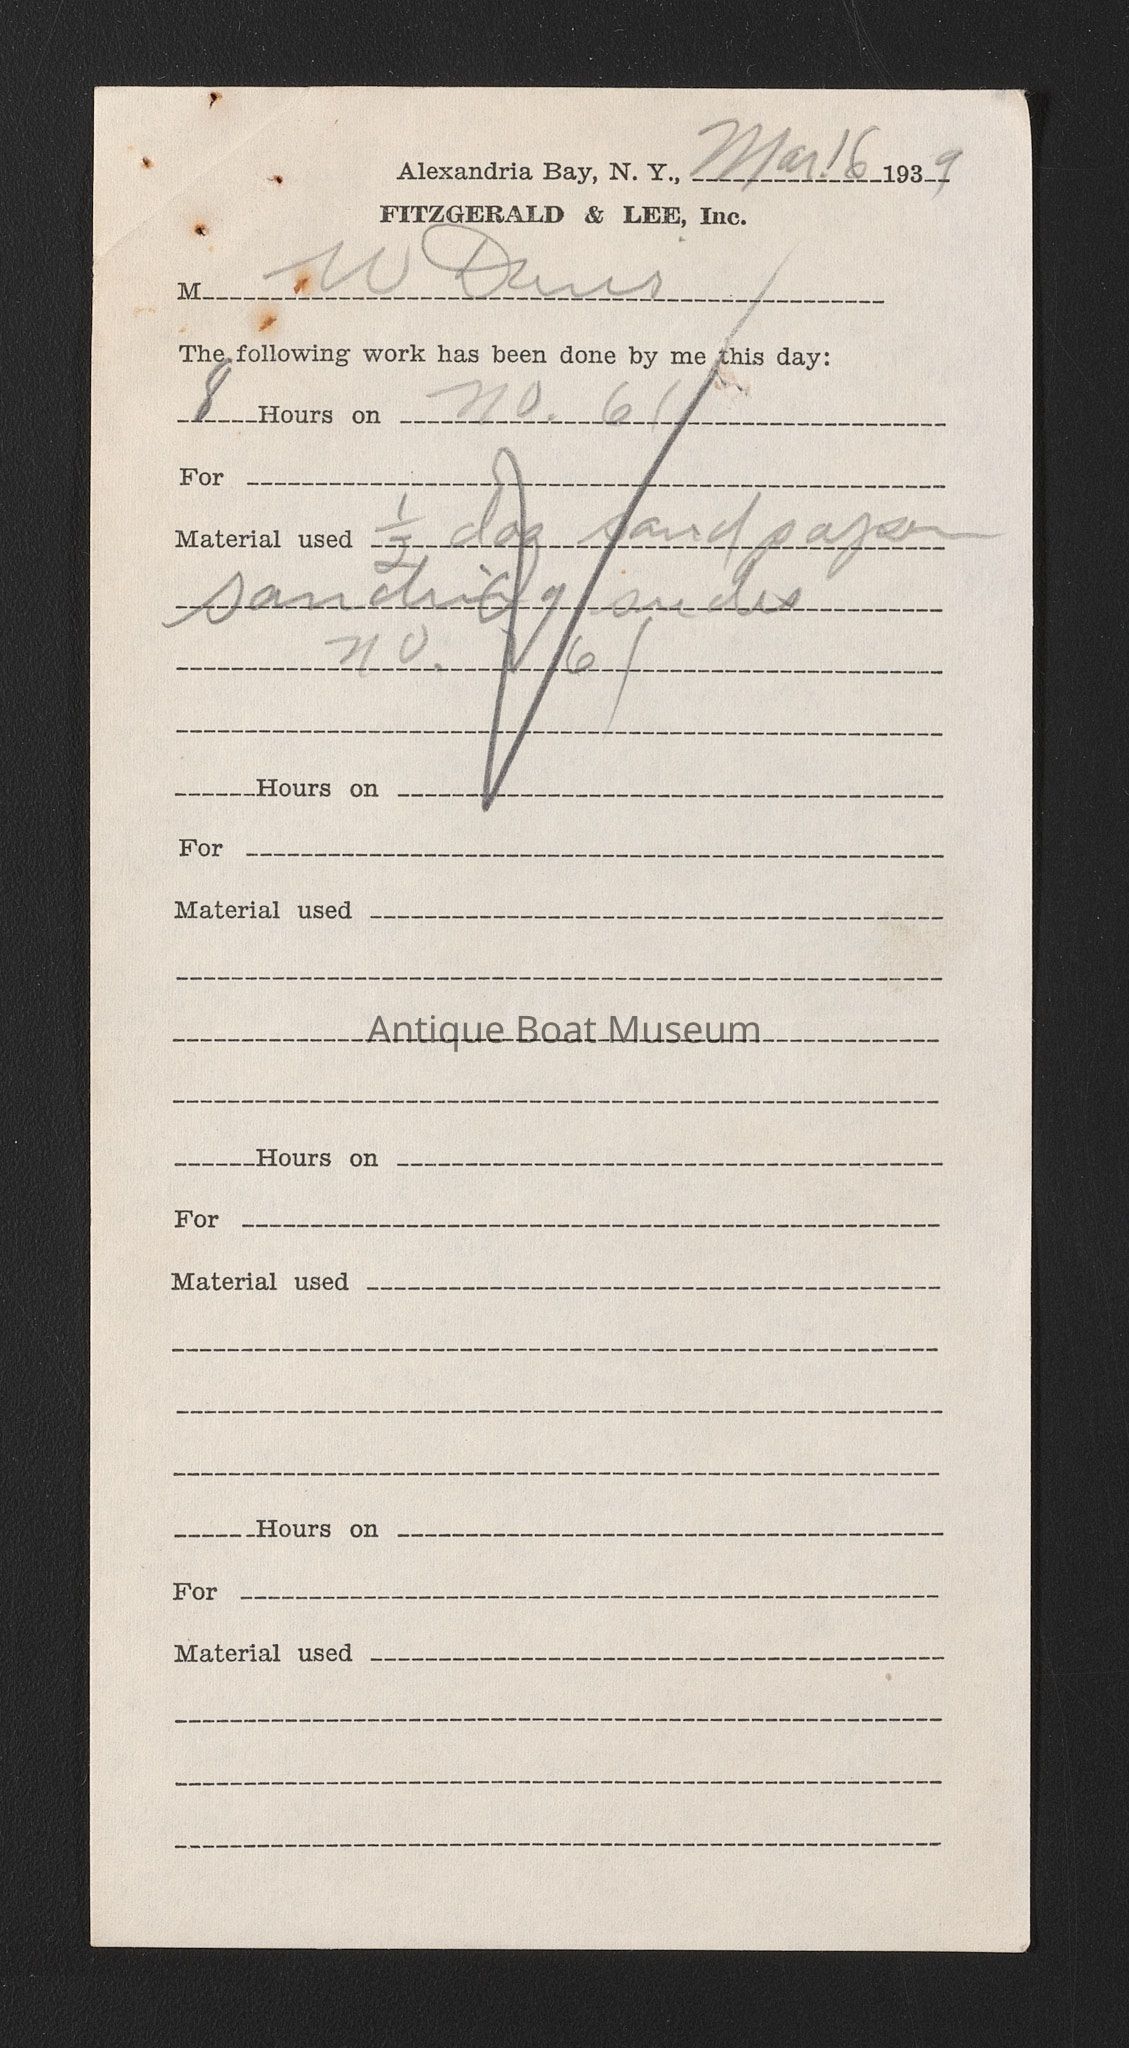 Alexandria Bay, N. Y., Mar. 16 1939
FITZGERALD & LEE, Inc.
M W Davis
The following work has been done by me this day:
8 Hours on no. 61
For
Material used 1/2 doz sandpaper
sanding sides
no. 61
Hours on
For
Material used
Antique Boat Museum
Hours on
For
Material used
Hours on
For
Material used